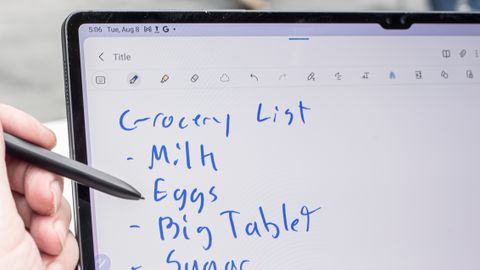 5:06 Tue, Aug 8
Title
Grocery List
- Milk
- Eggs
- Big Tablet
- Sugar